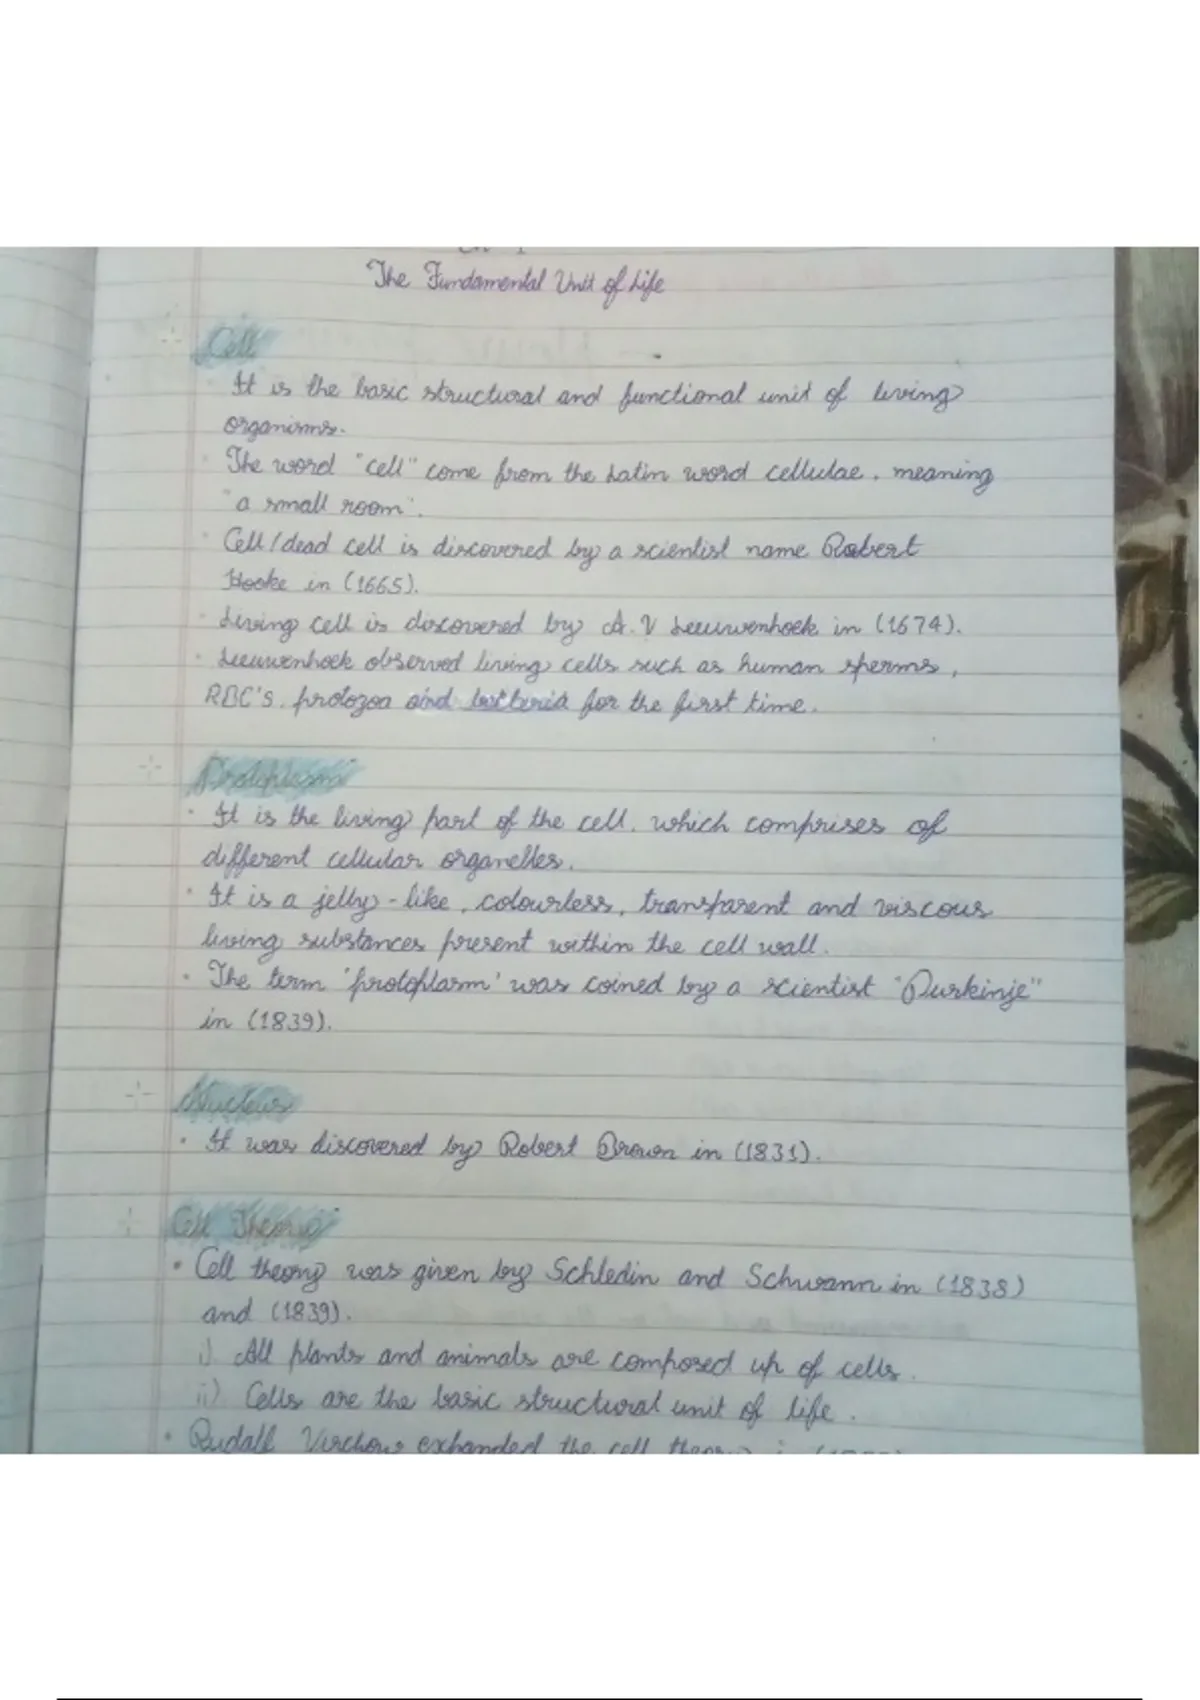 The Fundamental Unit of Life
Cell
It is the basic structural and functional unit of living
organisms.
The word "cell" come from the Latin word cellulae, meaning
"a small room".
Cell/dead cell is discovered by a scientist name Robert
Hooke in (1665).
Living cell is discovered by A.V Leeuwenhoek in (1674).
Leeuwenhoek observed living cells such as human sperms,
RBC's, protozoa and bacteria for the first time.
Protoplasm
• It is the living part of the cell, which comprises of
different cellular organelles.
• It is a jelly-like, colourless, transparent and viscous
living substances present within the cell wall.
• The term 'protoplasm' was coined by a scientist "Purkinje"
in (1839).
Nucleus
• It was discovered by Robert Brown in (1831).
Cell Theory
• Cell theory was given by Schledin and Schwann in (1838)
and (1839).
i) All plants and animals are composed up of cells.
ii) Cells are the basic structural unit of life.
• Rudalf Virchow expanded the cell theory